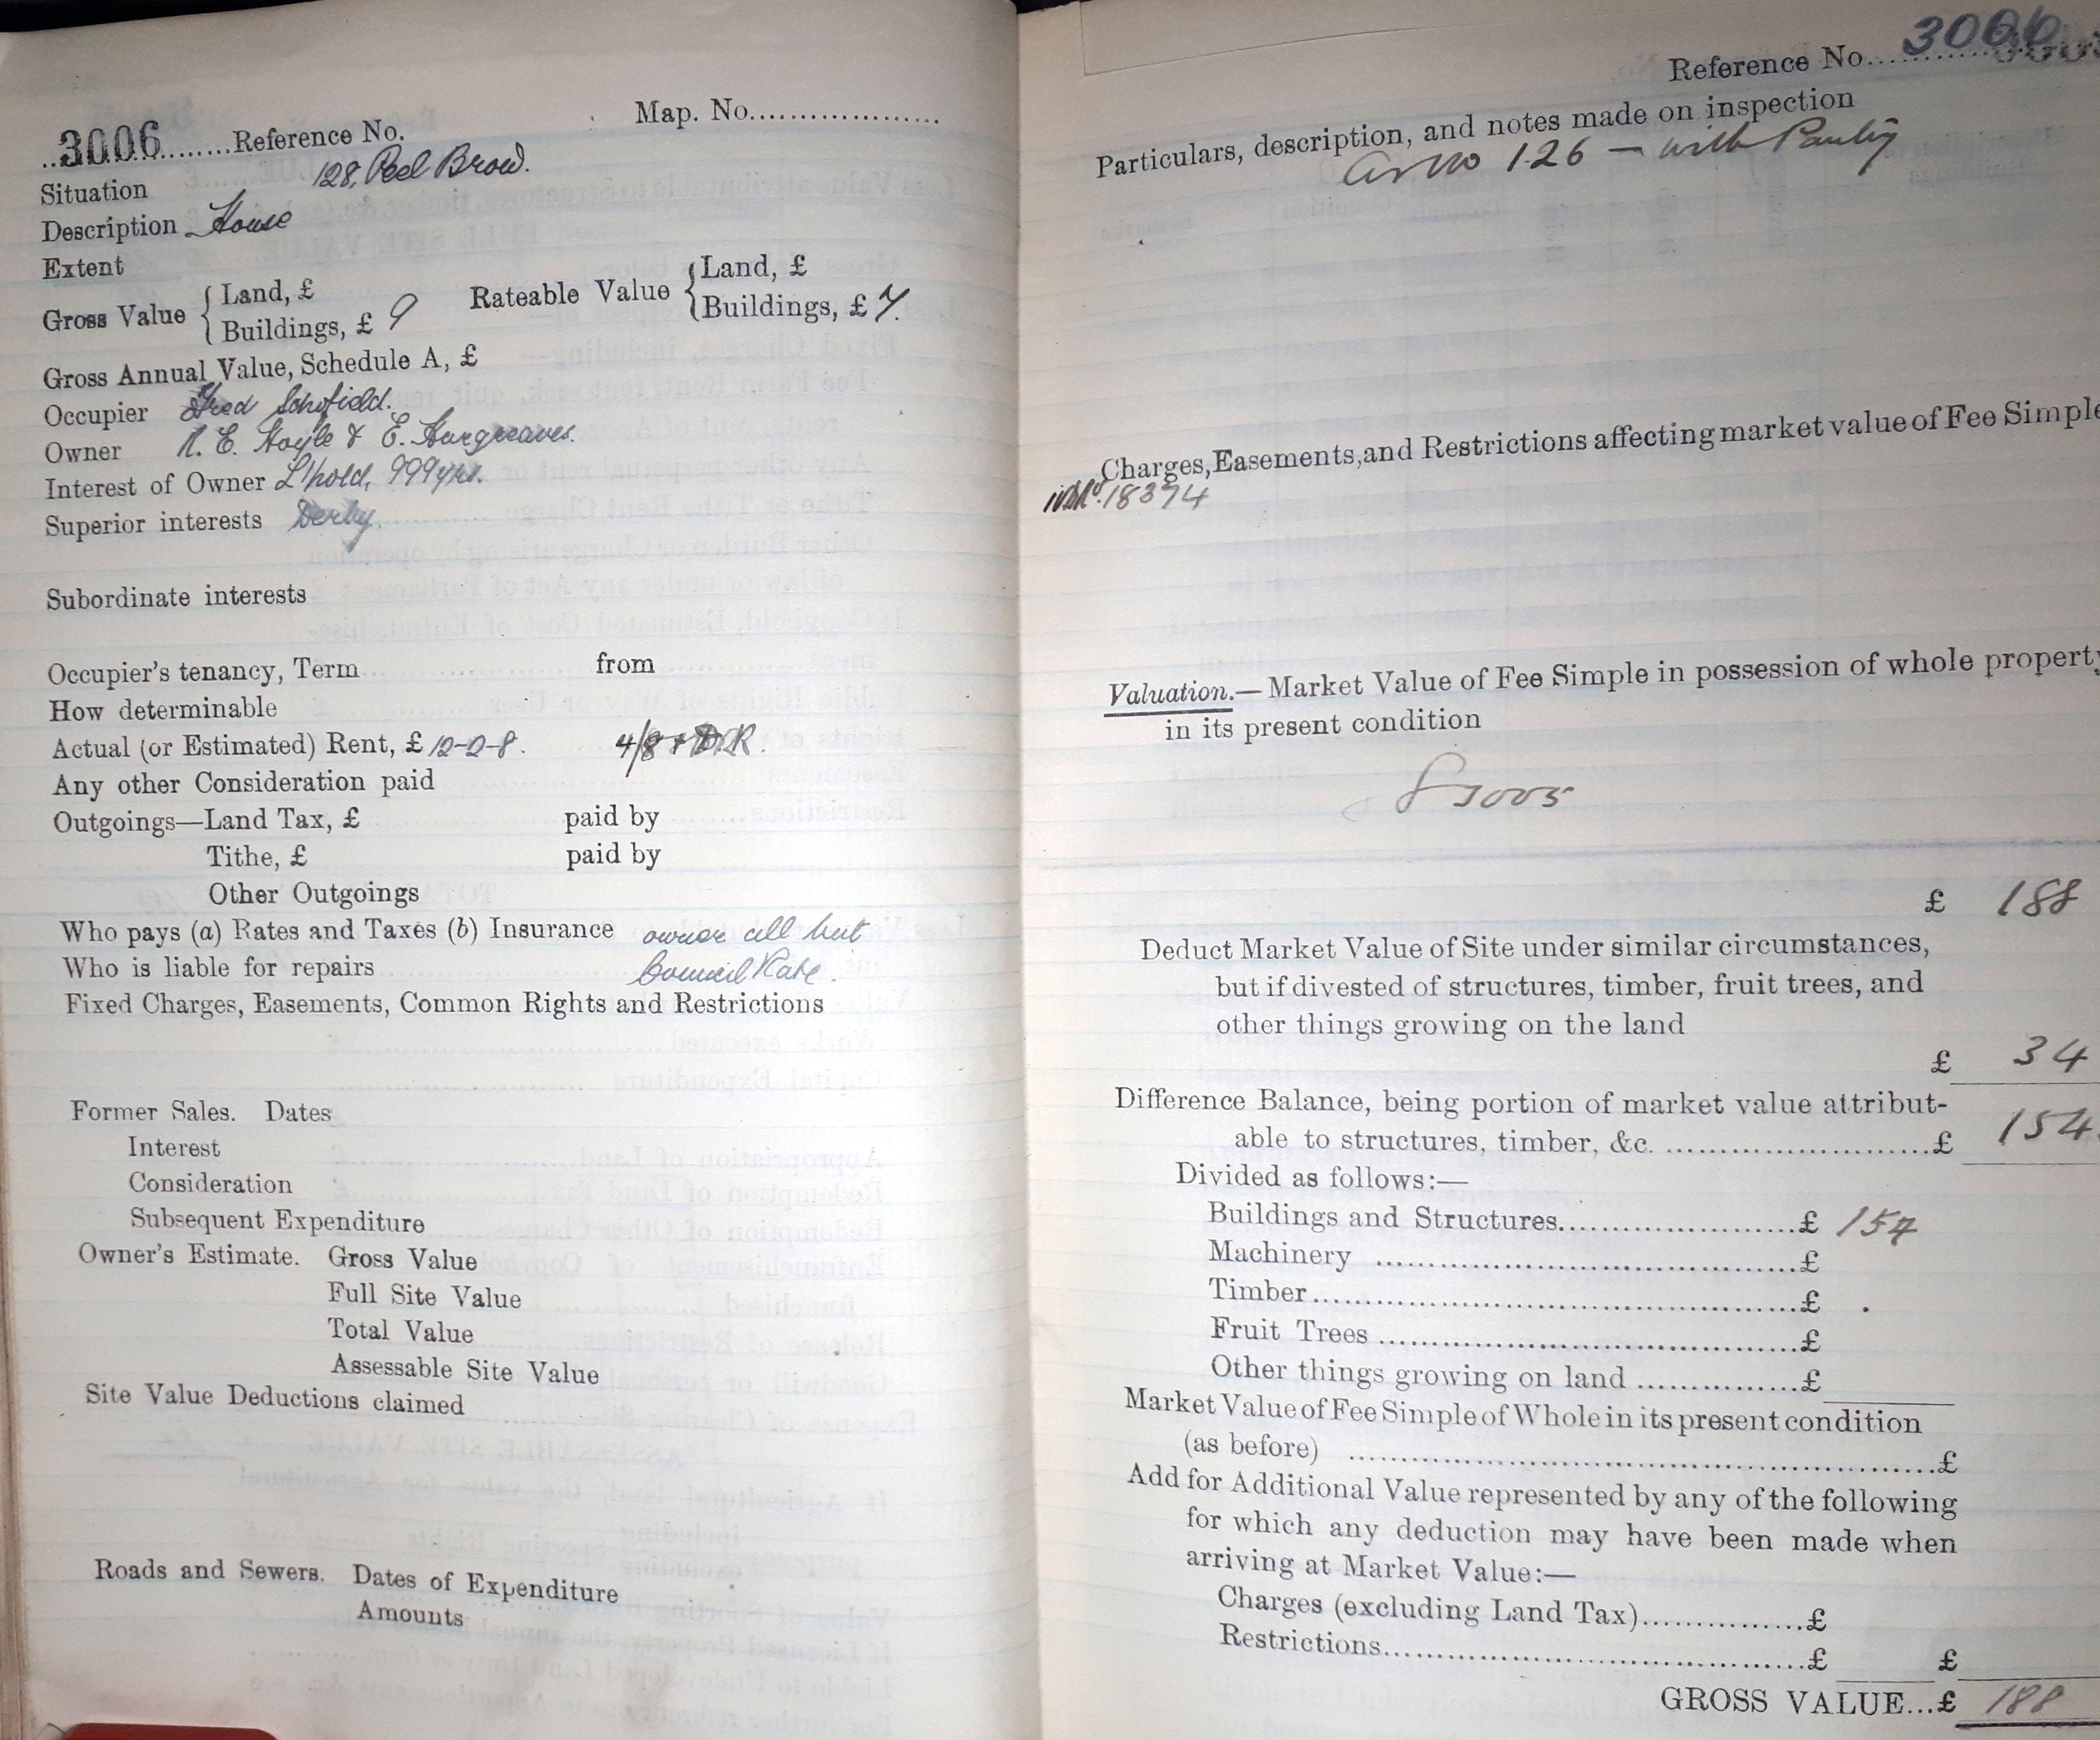 3006 Reference No. Map. No.
Situation 128, Peel Brow.
Description House
Extent
Gross Value { Land, £ Rateable Value { Land, £
Buildings, £ 9 Buildings, £ 7.
Gross Annual Value, Schedule A, £
Occupier Fred Schofield.
Owner E. Hoyle & E. Hargreaves.
Interest of Owner L'hold, 999 yrs.
Superior interests Derby.
Subordinate interests
Occupier's tenancy, Term from
How determinable
Actual (or Estimated) Rent, £ 12-2-8. 4/8 + D.R.
Any other Consideration paid
Outgoings—Land Tax, £ paid by
Tithe, £ paid by
Other Outgoings
Who pays (a) Rates and Taxes (b) Insurance owner all but
Who is liable for repairs Council Rate.
Fixed Charges, Easements, Common Rights and Restrictions
Former Sales. Dates
Interest
Consideration
Subsequent Expenditure
Owner's Estimate. Gross Value
Full Site Value
Total Value
Assessable Site Value
Site Value Deductions claimed
Roads and Sewers. Dates of Expenditure
Amounts
Reference No. 3006
Particulars, description, and notes made on inspection
as no 126 — with Pantry
Charges, Easements, and Restrictions affecting market value of Fee Simple
18374
Valuation.— Market Value of Fee Simple in possession of whole property
in its present condition
3005
£ 188
Deduct Market Value of Site under similar circumstances,
but if divested of structures, timber, fruit trees, and
other things growing on the land
£ 34
Difference Balance, being portion of market value attribut-
able to structures, timber, &c. £ 154
Divided as follows:—
Buildings and Structures £ 154
Machinery £
Timber £
Fruit Trees £
Other things growing on land £
Market Value of Fee Simple of Whole in its present condition
(as before) £
Add for Additional Value represented by any of the following
for which any deduction may have been made when
arriving at Market Value:—
Charges (excluding Land Tax) £
Restrictions £ £
GROSS VALUE...£ 188